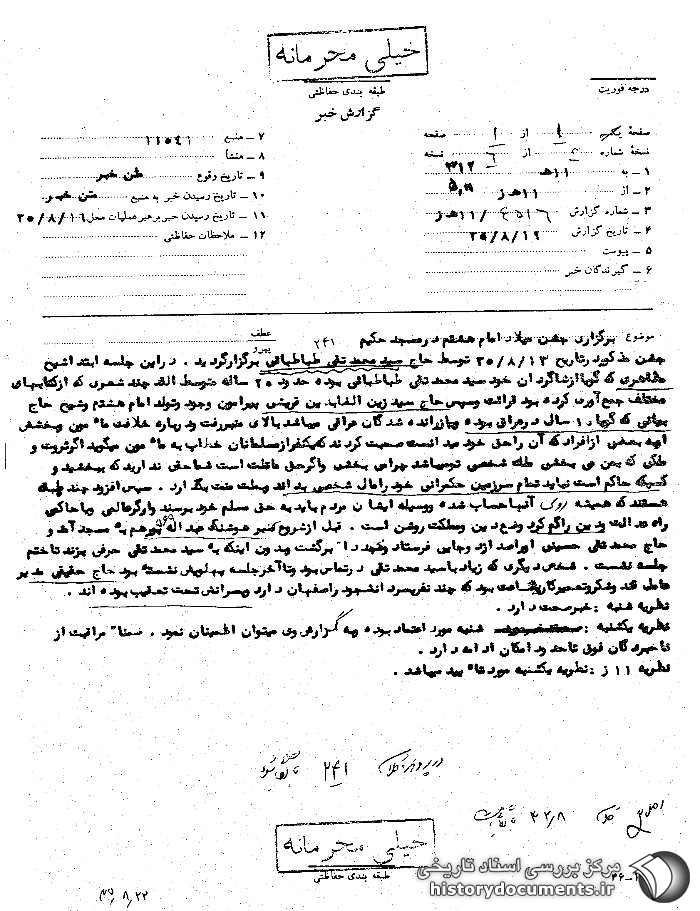 خیلی محرمانه
طبقه بندی حفاظتی
درجه فوریت
گزارش خبر
صفحهٔ یکم از ۱ صفحه
نسخهٔ شماره از ۶ نسخه
۱ ـ به ۳۱۲
۲ ـ از ۱۱هـ ز
۳ ـ شماره گزارش /۱۱هـ ز
۴ ـ تاریخ گزارش ۳۵/۸/۱۹
۵ ـ پیوست
۶ ـ گیرندگان خبر
۷ ـ منبع ۱۱۵۴۱
۸ ـ منشأ
۹ ـ تاریخ وقوع متن خبر
۱۰ ـ تاریخ رسیدن خبر به منبع متن خبر
۱۱ ـ تاریخ رسیدن خبر برهبر عملیات محل ۳۵/۸/۱۶
۱۲ ـ ملاحظات حفاظتی
موضوع برگزاری جشن میلاد امام هشتم در مسجد حکیم عطف پیرو ۲۴۱
جشن مذکور در تاریخ ۳۵/۸/۱۳ توسط حاج سید محمد تقی طباطبائی برگزار گردید . در این جلسه ابتدا شیخ
که گویا از شاگردان خود سید محمد تقی طباطبائی بوده حدود ۲۵ ساله متوسط القد چند شعری که از کتابهای
مختلف جمع آوری کرده بود قرائت و سپس حاج سید زین العابدین قریشی پیرامون وجود و تولد امام هشتم و شیخ حاج
که گویا ۱۰ سال در عراق بوده و باز رانده شدگان عراقی میباشد بالای منبر رفت و درباره خلافت مأمون و بخشش
او به بعضی از افراد که آن را حق خود میدانست صحبت کردند که یکنفر از مسلمانان خطاب به مأمون میگوید اگر ثروت و
ملکی که بمن می بخشی ملک شخصی تو میباشد چرا می بخشی و اگر حق ماست شما حقی ندارید که ببخشید و
کسیکه حاکم است نباید تمام سرزمین حکمرانی خود را مال شخصی بداند و ملت منت بگذارد . سپس افزود چند
هستند که همیشه (روی) آنها حساب شده و وسیله ایشان مردم باید به حق مسلم خود برسند و اگر عالمی و یا حاکمی
راه عدالت و دین را گم کرد وضع دین و مملکت روشن است . قبل از شروع منبر هوشنگ عبداله پور هم به مسجد آمد و
حاج محمد تقی حسینی او را صدا زد و جایی فرستاد و بعداً برگشت و بدون اینکه به سید محمد تقی حرفی بزند تا ختم
جلسه نشست . شخص دیگری که زیاد با سید محمد تقی در تماس بود و تا آخر جلسه پهلویش نشسته بود حاج حقیقی مدیر
عامل قند و شکر و تعمیرکار بود که چند نفر پسر دانشجو در اصفهان دارد و پسرانش تحت تعقیب بوده اند .
نظریه شنبه : خبر صحت دارد .
نظریه یکشنبه : شنبه مورد اعتماد بوده و به گزارش وی میتوان اطمینان نمود . ضمناً مراقبت از
نامبردگان فوق تا حدود امکان ادامه دارد .
نظریه ۱۱ ز : نظریه یکشنبه مورد تأیید میباشد .
در پرونده کلاسه ۲۴۱
۳۵/۸/۲۲
خیلی محرمانه
طبقه بندی حفاظتی
مرکز بررسی اسناد تاریخی
historydocuments.ir